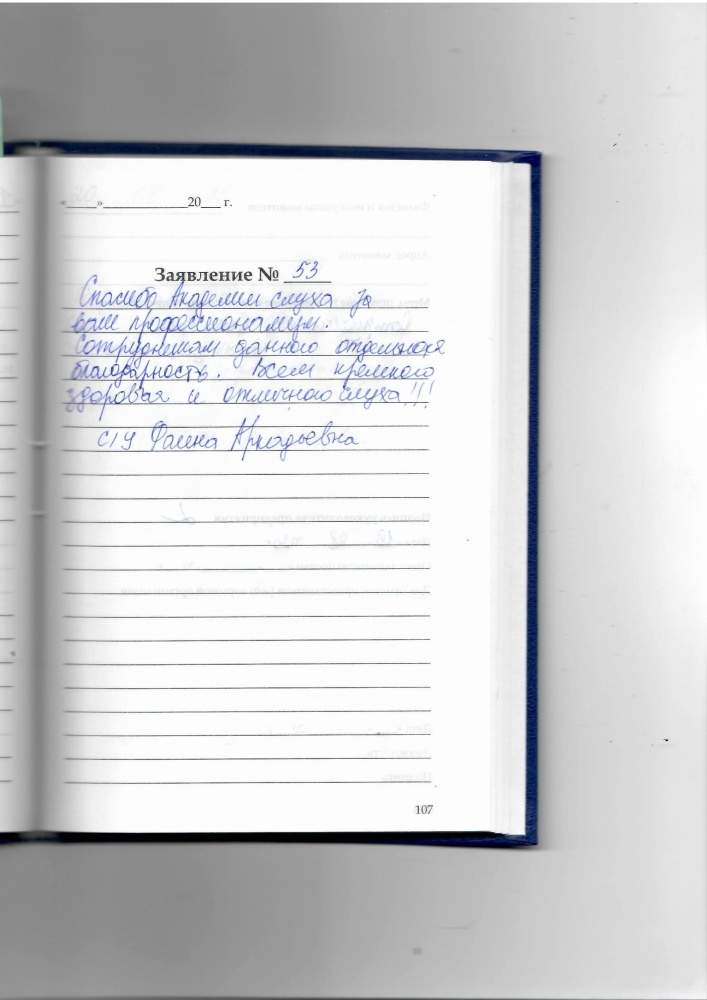 «____»____________20___ г.
Заявление № 53
Спасибо Академии слуха за
ваш профессионализм.
Сотрудникам данного отдельная
благодарность. Всем крепкого
здоровья и отличного слуха!!!
С/У Фаина Аркадьевна
107